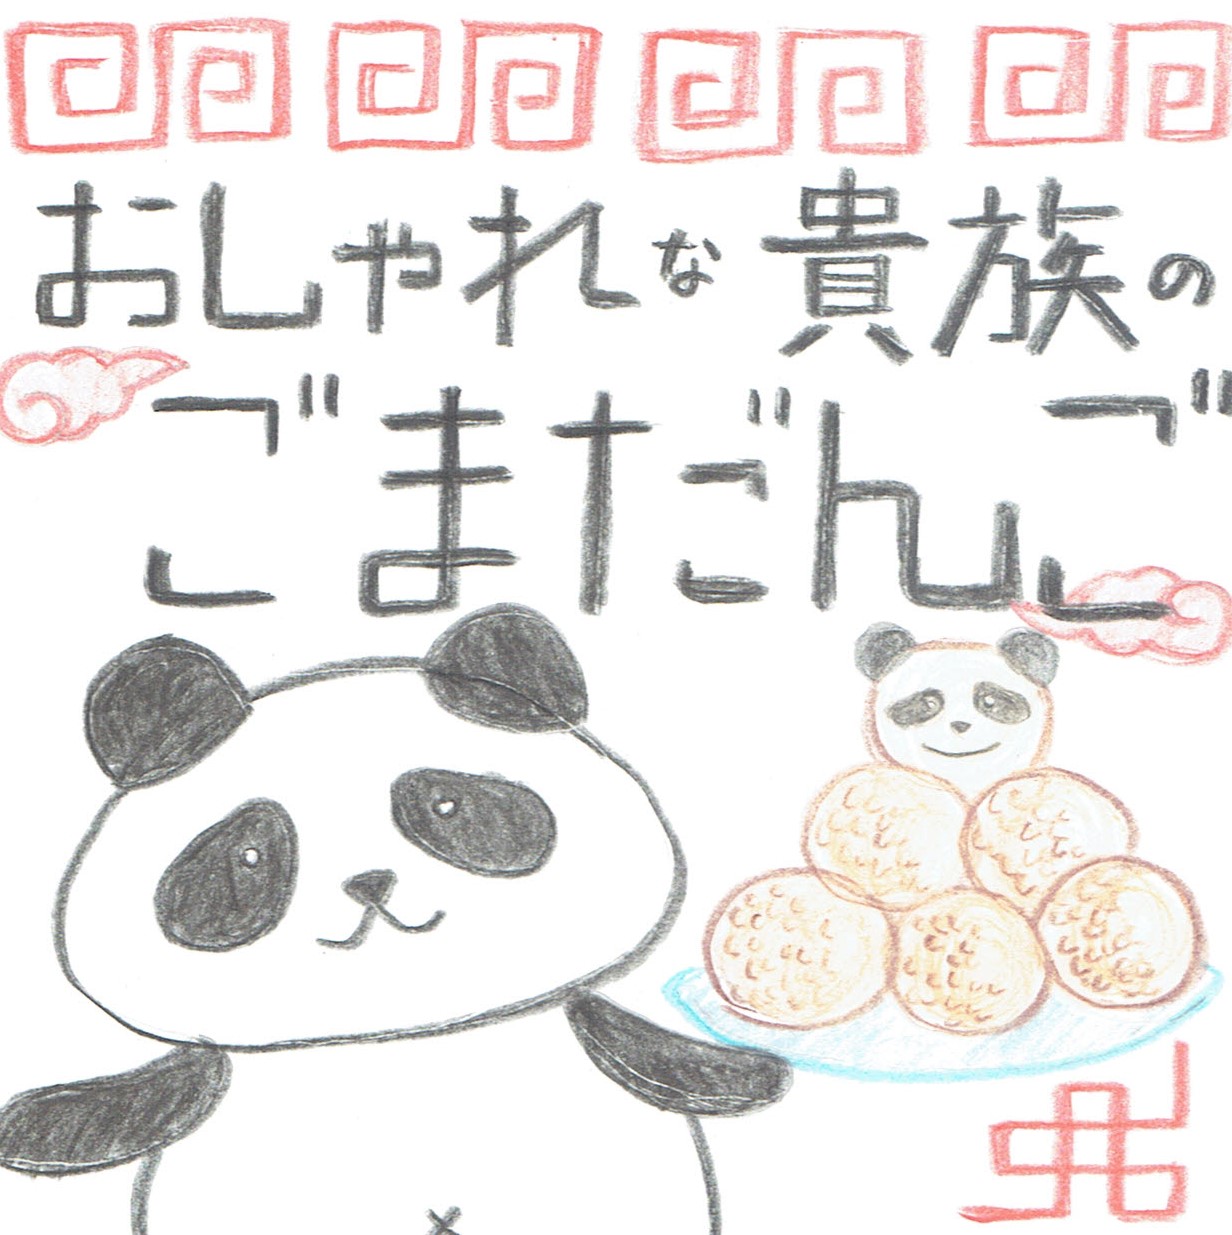 おしゃれな貴族の
ごまだんご